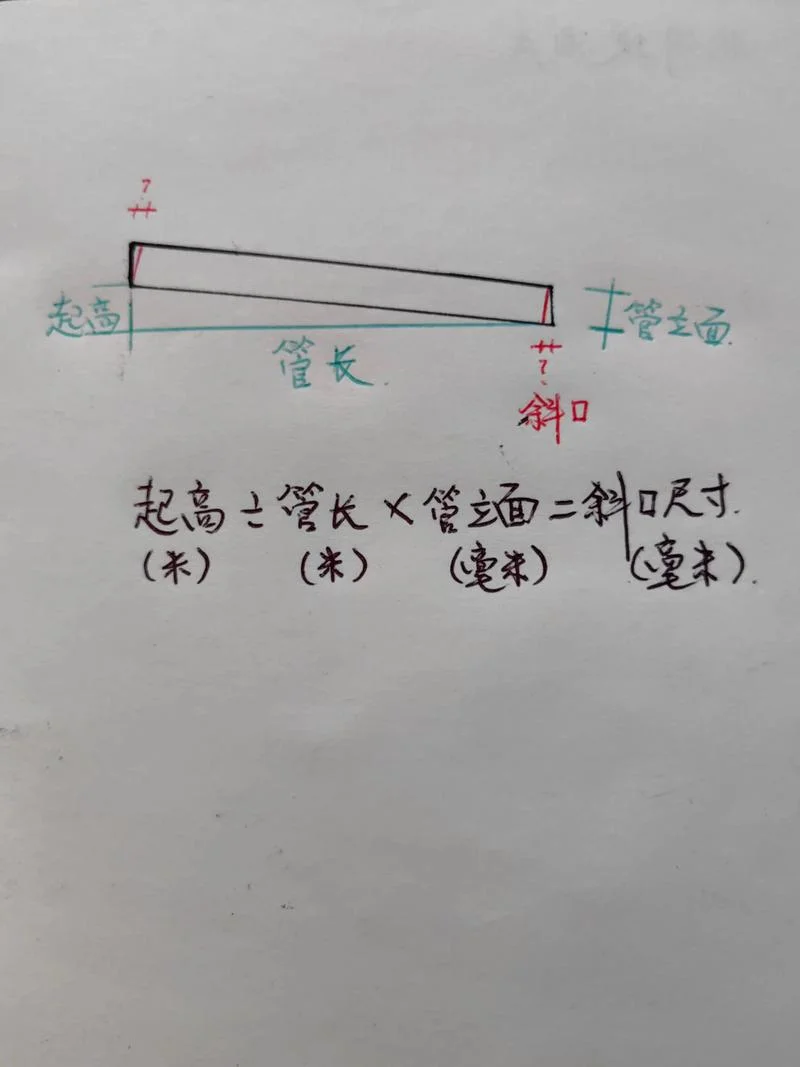 ?
起高
管立面
管长
?
斜口
起高÷管长×管立面=斜口尺寸.
(米) (米) (毫米) (毫米).